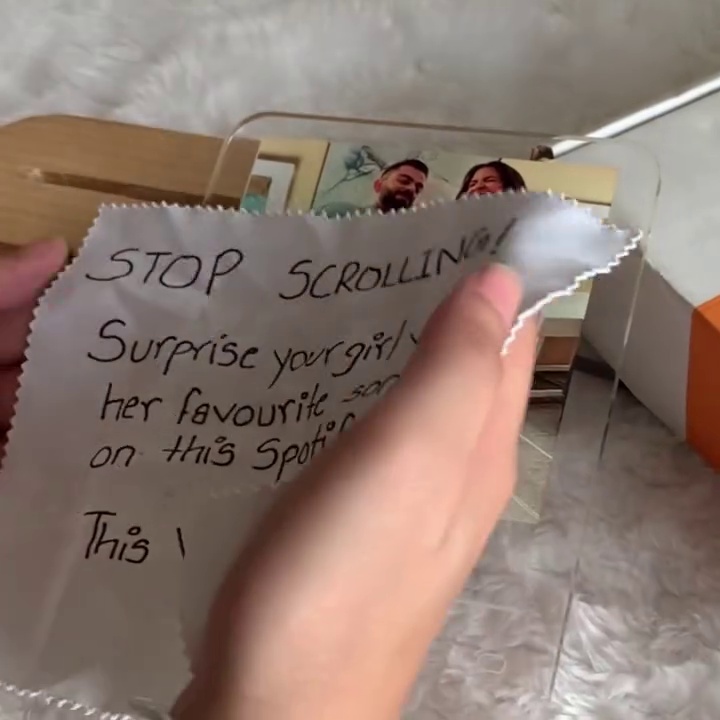 STOP SCROLLING!
Surprise your girl
her favourite
on this
This